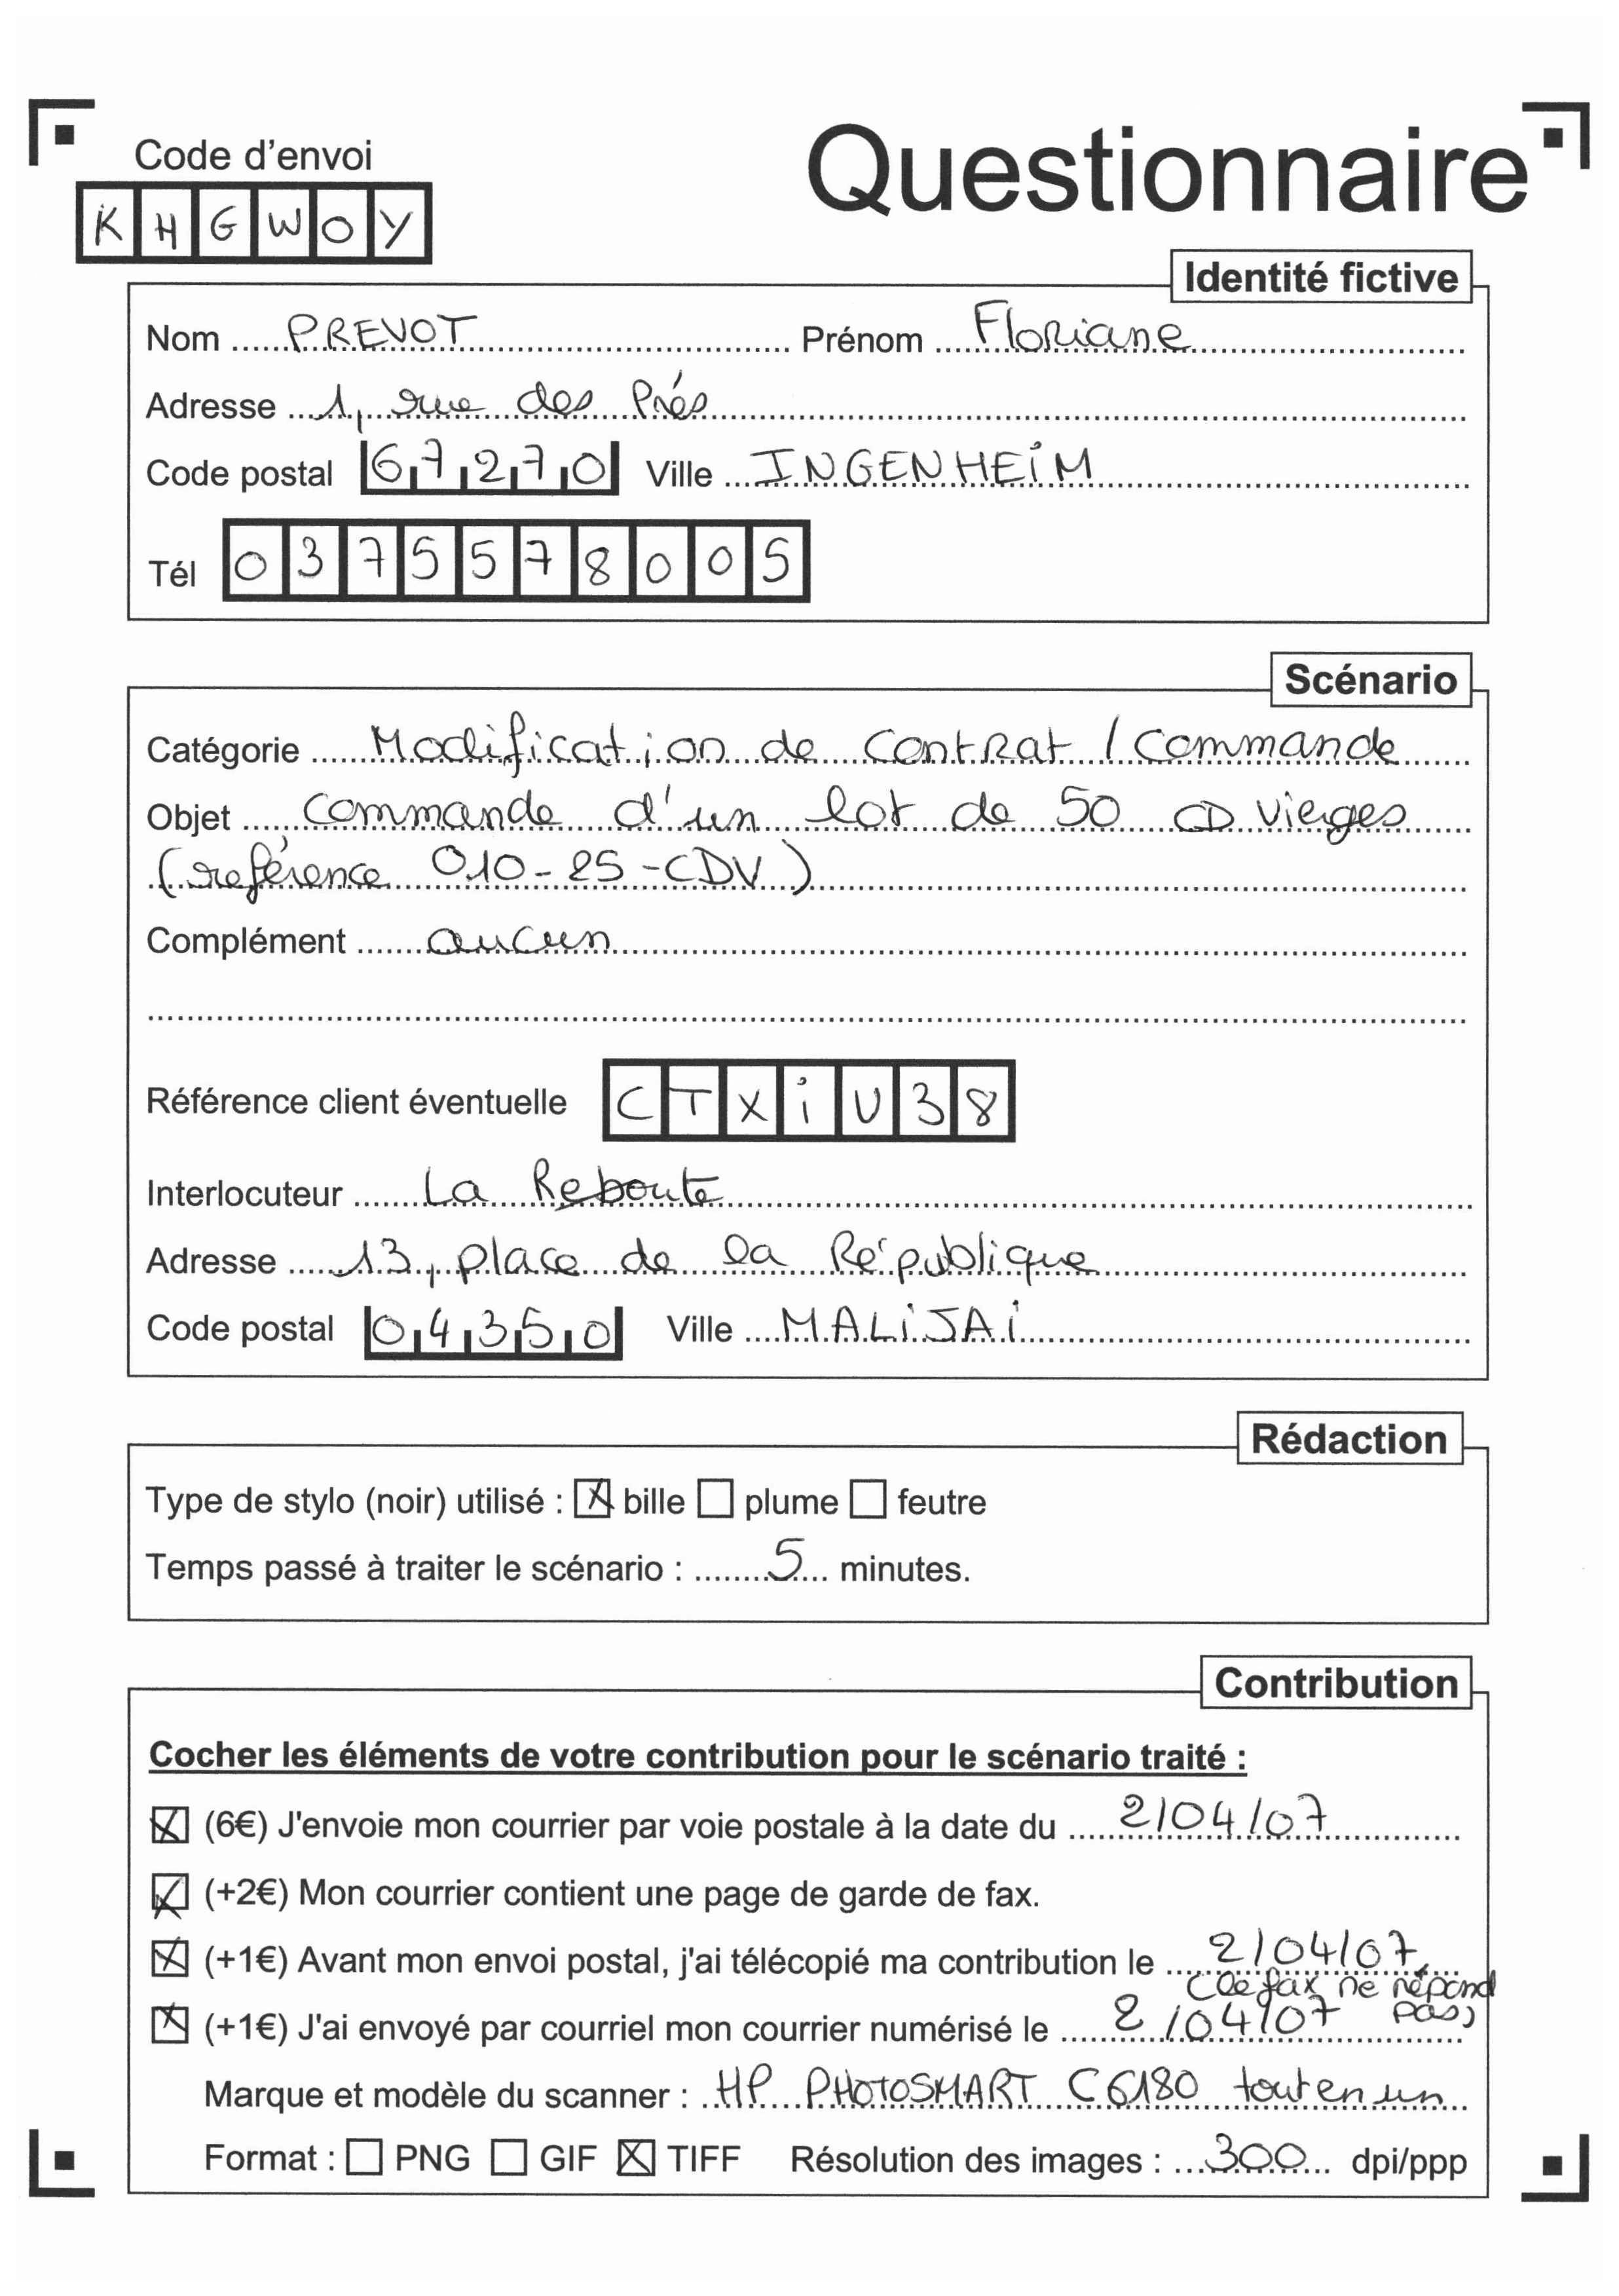 Code d'envoi
Questionnaire
KHGWOY
Identité fictive
Nom PREVOT Prénom Floriane
Adresse 1, rue des Prés
Code postal 67270 Ville INGENHEiM
Tél 0375578005
Scénario
Catégorie Modification de contrat / commande
Objet commande d'un lot de 50 CD vierges
(référence 010-25-CDV)
Complément aucun
Référence client éventuelle CTXiU38
Interlocuteur La Reboute
Adresse 13, place de la République
Code postal 04350 Ville MALiJAi
Rédaction
Type de stylo (noir) utilisé : ☒ bille ☐ plume ☐ feutre
Temps passé à traiter le scénario : 5 minutes.
Contribution
Cocher les éléments de votre contribution pour le scénario traité :
☒ (6€) J'envoie mon courrier par voie postale à la date du 2/04/07
☒ (+2€) Mon courrier contient une page de garde de fax.
☒ (+1€) Avant mon envoi postal, j'ai télécopié ma contribution le 2/04/07
(le fax ne répond
pas)
☒ (+1€) J'ai envoyé par courriel mon courrier numérisé le 2/04/07
Marque et modèle du scanner : HP PHOTOSMART C6180 tout en un
Format : ☐ PNG ☐ GIF ☒ TIFF Résolution des images : 300 dpi/ppp